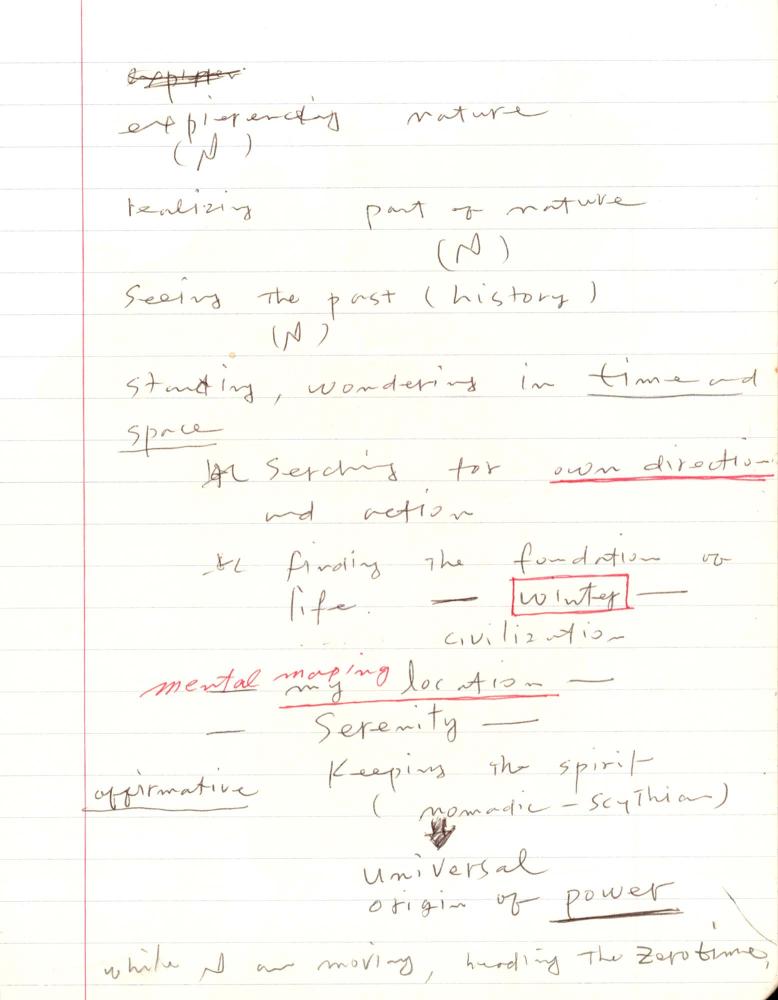 expierencing nature
(N)
realizing part of nature
(N)
Seeing the past (history)
(N)
standing, wondering in time and
space
Serching for own direction
and action
finding the foundation of
life. — winter —
civilization
mental maping
my location —
— Serenity —
Keeping the spirit
affirmative
(nomadic - Scythian)
universal
origin of power
while N am moving, heading the Zero time,